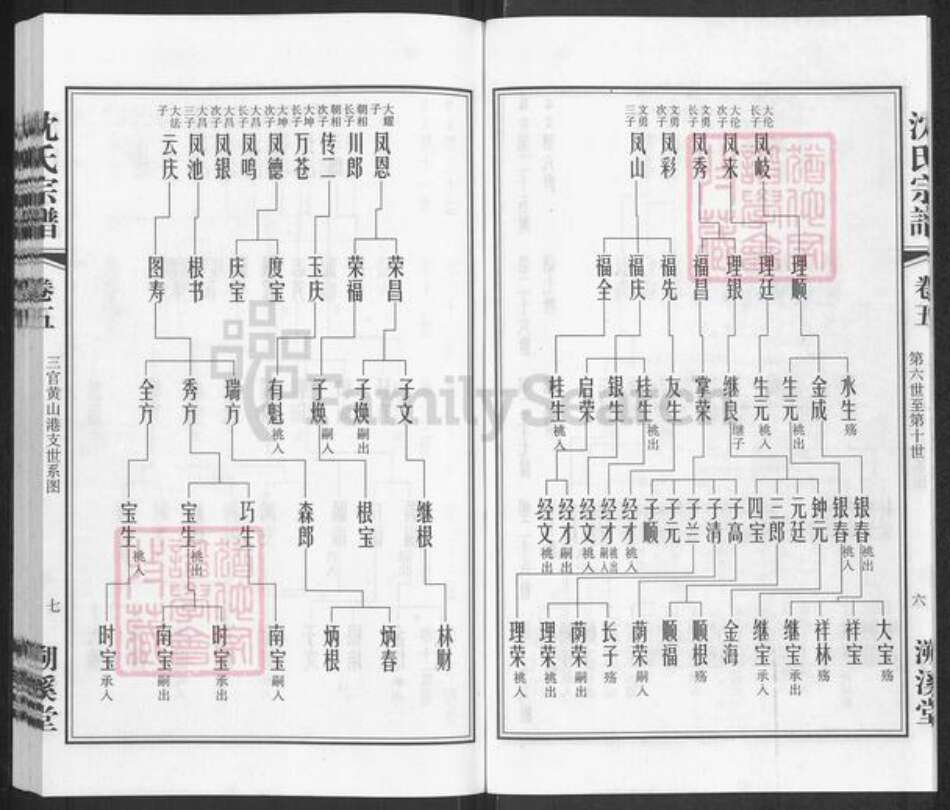 沈氏宗谱
卷五
第六世至第十世
六
溯溪堂
大伦长子 凤岐
大伦次子 凤来
文勇长子 凤秀
文勇次子 凤彩
文勇三子 凤山
理顺
理廷
理银
福昌
福先
福庆
福全
水生 殇
金成
生元 桃出
生元 桃入
继良 继子
掌荣
友生
桂生 桃出
银生
启荣
桂生 桃入
银春 桃出
银春 桃入
钟元
元廷
三郎
四宝
子高
子清
子兰
子元
子顺
经才 桃入
经才 嗣入 桃出
经文 桃入
经才 嗣出
经文 桃出
大宝 殇
祥宝
祥林 殇
继宝 承出
继宝 承入
金海
顺根 殇
顺福
荫荣 嗣入
长子 殇
荫荣 嗣出
理荣 桃出
理荣 桃入
大耀子 凤恩
朝相长子 川郎
朝相次子 传二
大坤长子 万苍
大坤次子 凤德
大昌长子 凤鸣
大昌次子 凤银
大昌三子 凤池
大法子 云庆
荣昌
荣福
玉庆
度宝
庆宝
根书
图寿
子文
子焕 嗣出
子焕 嗣入
有魁 桃入
瑞方
秀方
全方
继根
根宝
森郎
巧生
宝生 桃出
宝生 桃入
林财
炳春
炳根
南宝 嗣入
时宝 承出
南宝 嗣出
时宝 承入
沈氏宗谱
卷五
三官黄山港支世系图
七
溯溪堂
FamilySearch